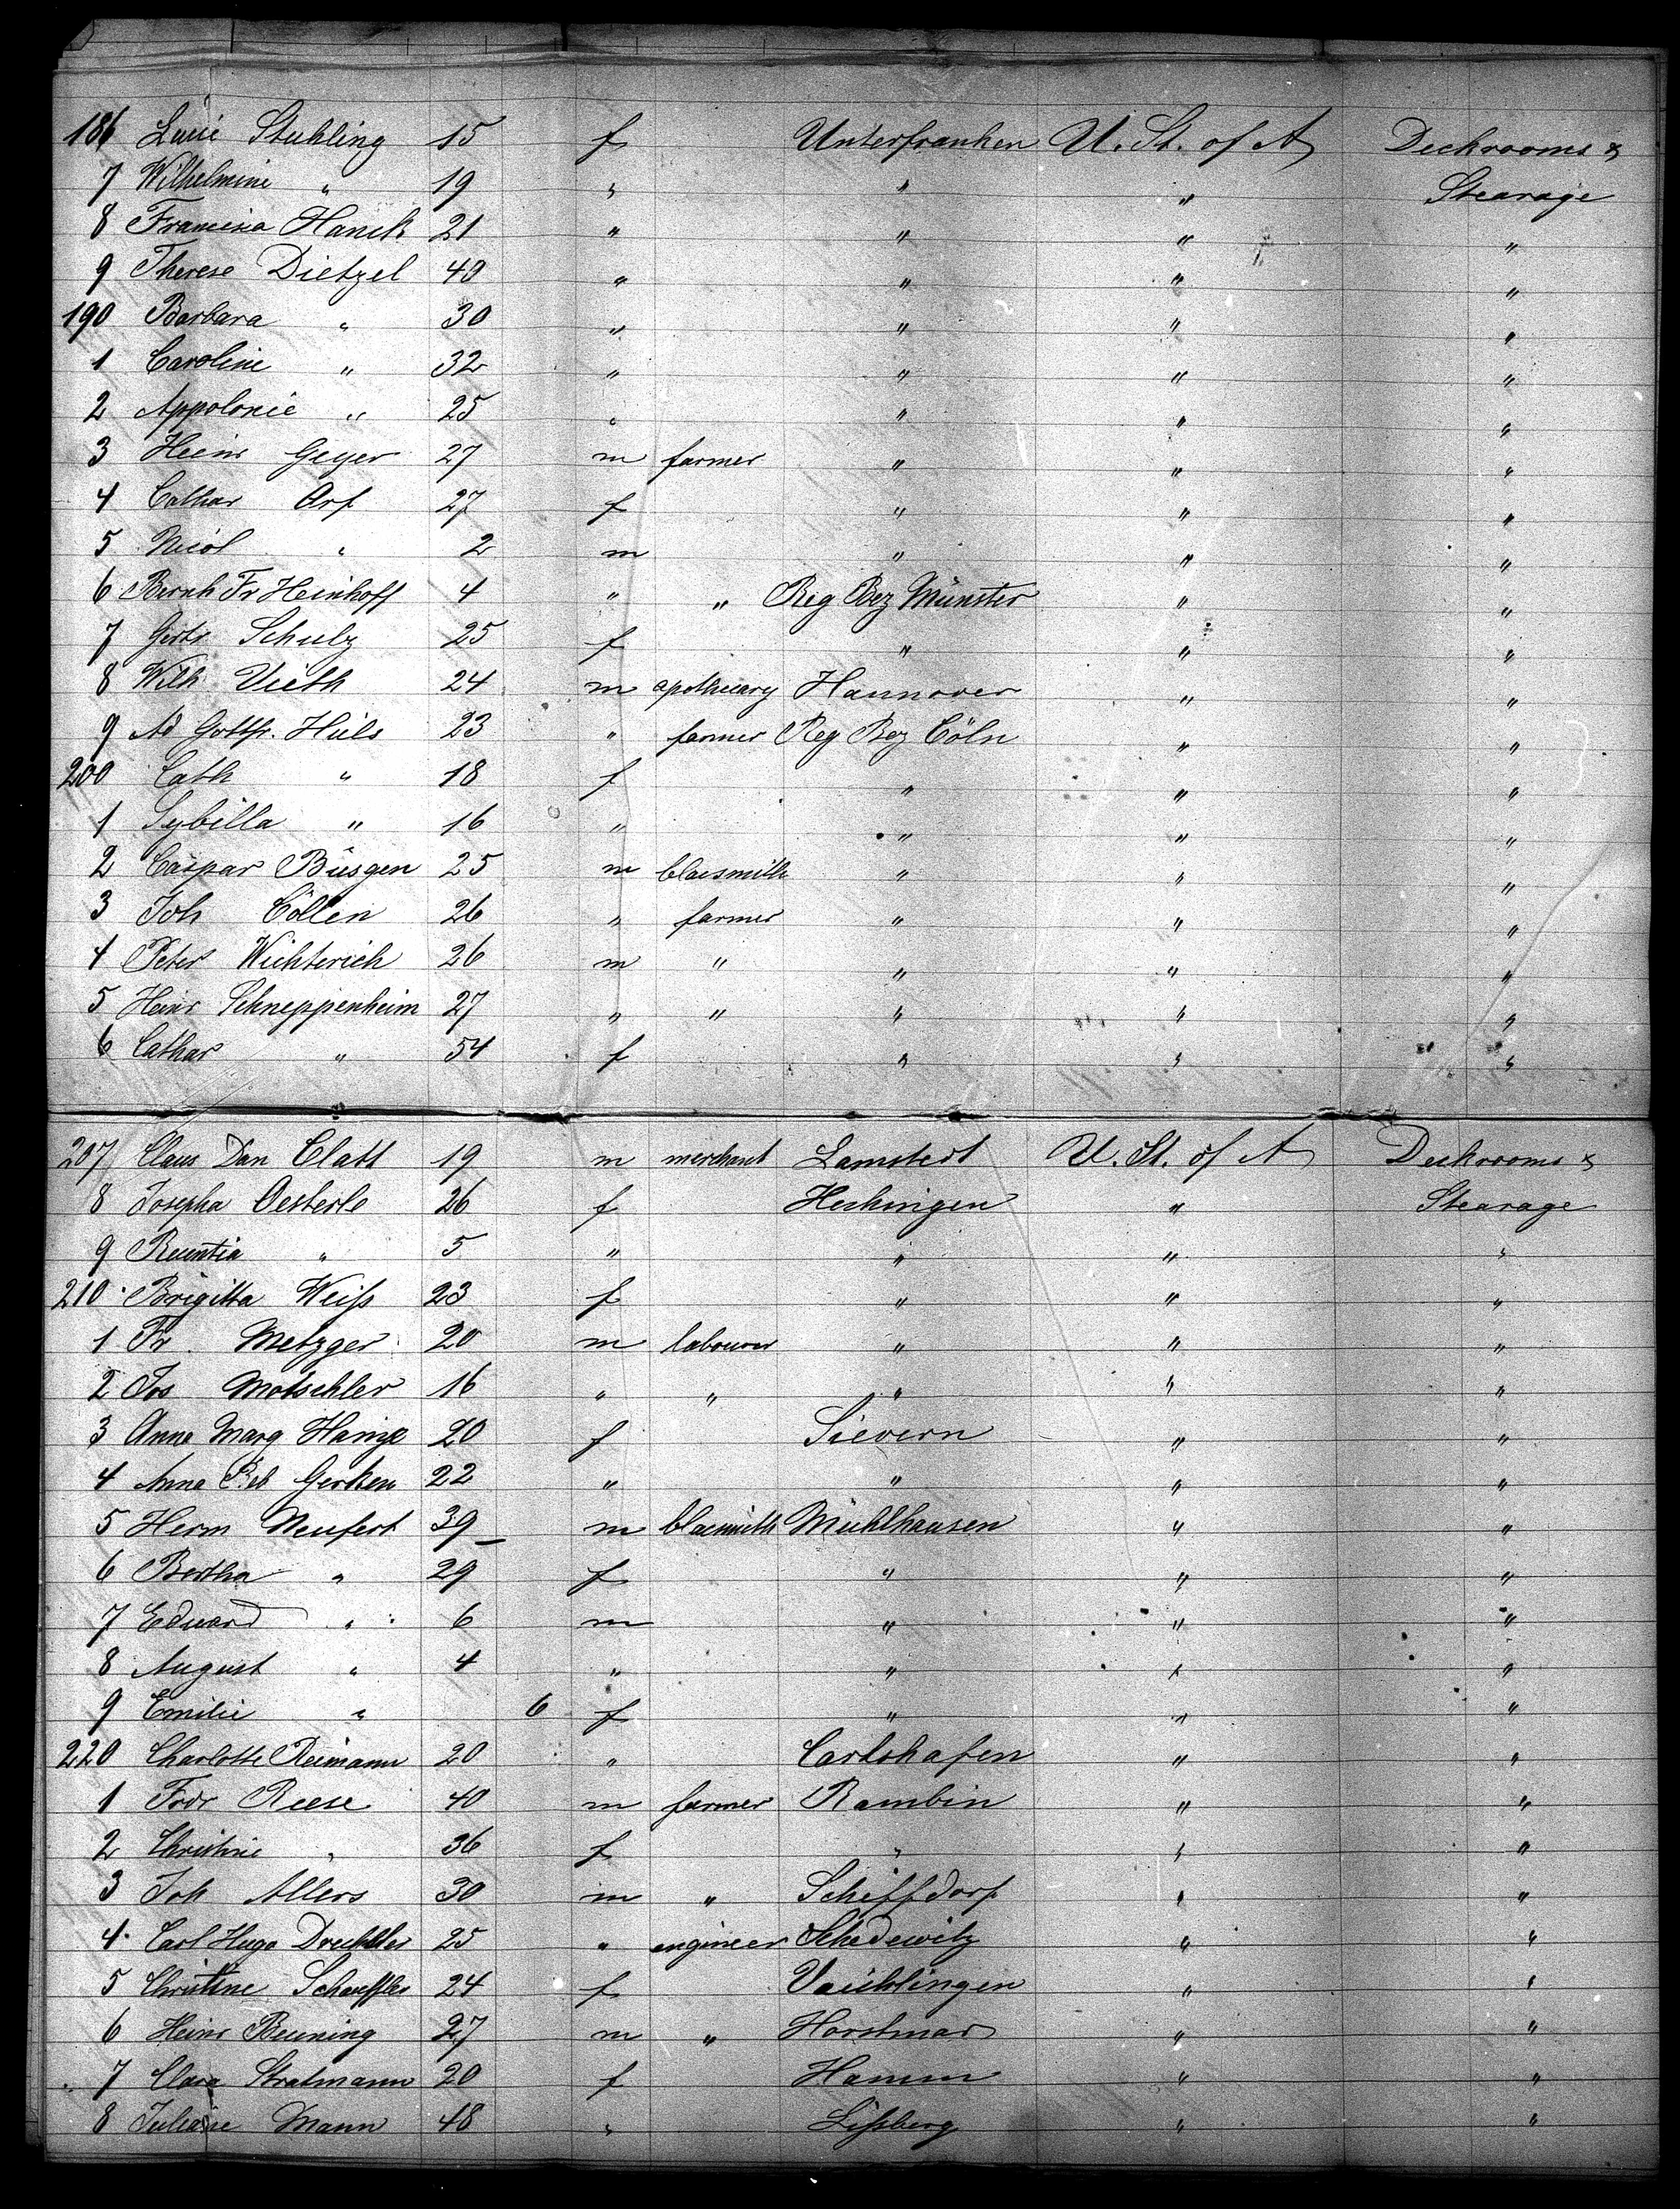 186 Luise Stuhling 15 f Unterfranken U. St. of A Deckrooms &
7 Wilhelmine " 19 " " " Stearage
8 Francisca Hanck 21 " " " "
9 Therese Dietzel 40 " " " "
190 Barbara " 30 " " " "
1 Caroline " 32 " " " "
2 Appolonie " 25 " " " "
3 Heinr Geyer 27 m farmer " " "
4 Cathar Orf 27 f " " "
5 Nicol " 2 m " " "
6 Bernh Fr Heinhoff 4 " " Reg Bez Münster " "
7 Gertr Schulz 25 f " " "
8 Wilh Vieth 24 m apothecary Hannover " "
9 Ad Gottfr. Hüls 23 " farmer Reg Bez Cöln " "
200 Cath " 18 f " " "
1 Sybilla " 16 " " " "
2 Caspar Büsgen 25 m blacsmith " " "
3 Joh Cöllen 26 " farmer " " "
4 Peter Wichterich 26 m " " " "
5 Heinr Schneppenheim 27 " " " " "
6 Cathar " 54 f " " "
207 Claus Dan Clatt 19 m merchant Lamstedt U. St. of A Deckrooms &
8 Josepha Oesterle 26 f Hechingen " Stearage
9 " 5 " " " "
210 Brigitta Weiß 23 f " " "
1 Fr. Metzger 20 m labourer " " "
2 Jos Motschler 16 " " " " "
3 Anna Marg 20 f Sievern " "
4 Anna Reb Gerken 22 " " " "
5 Herm Neufert 39 m blacsmith Mühlhausen " "
6 Bertha " 29 f " " "
7 Eduard " 6 m " " "
8 August " 4 " " " "
9 Emilie " 6 f " " "
220 Charlotte Reimann 20 " Carlshafen " "
1 Fredr Reese 40 m farmer Rambin " "
2 Christine " 36 f " " "
3 Joh Allers 30 m " Schiffdorf " "
4 Carl Hugo Drechsler 25 " engineer Schedewitz " "
5 Christine Schaeffler 24 f Vaichlingen " "
6 Heinr Beuning 27 m " Horstmar " "
7 Clara Stratmann 20 f Hamm " "
8 Juliane Mann 48 " Lißberg " "